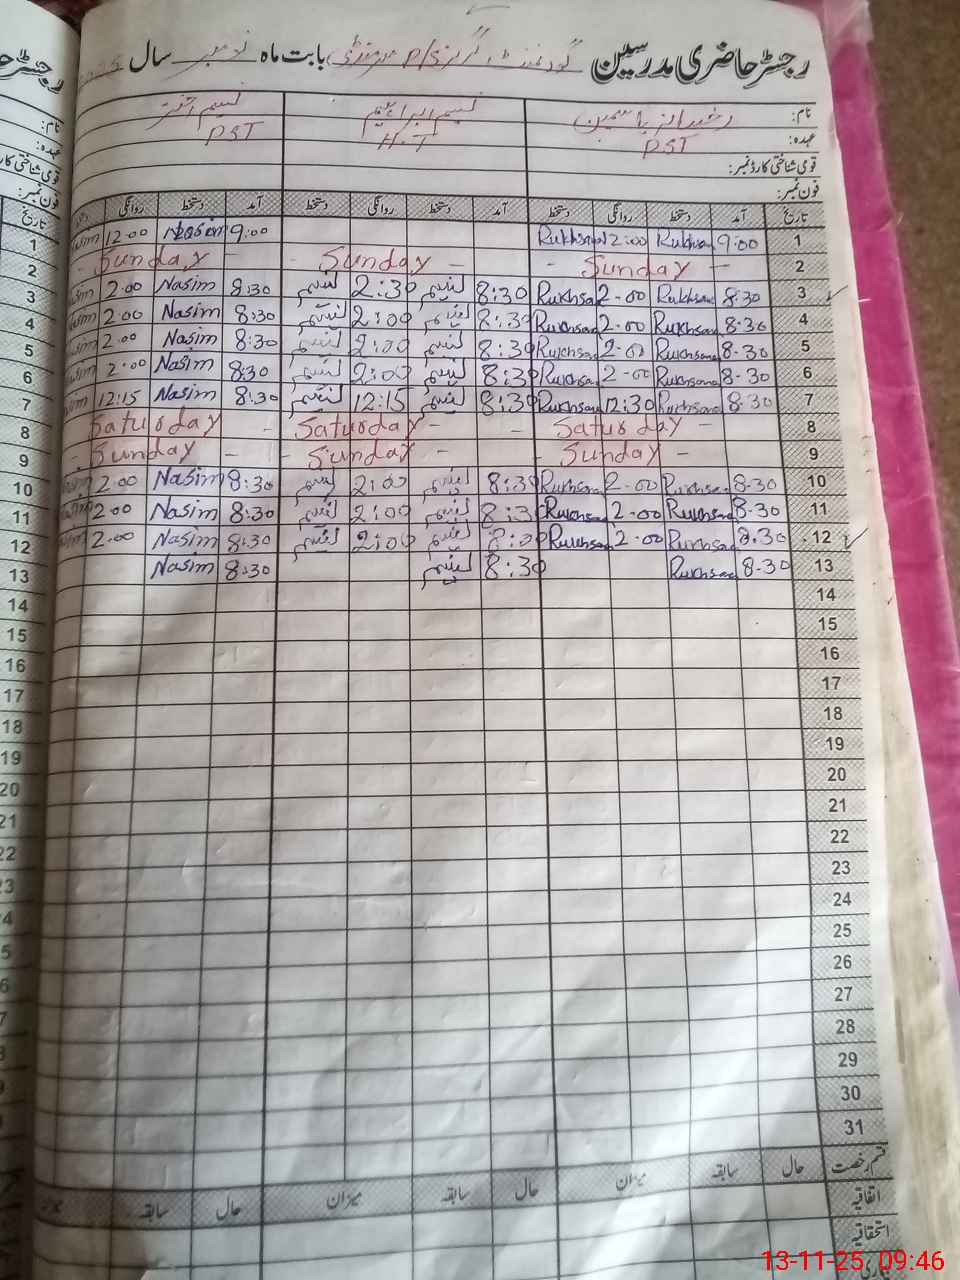 رجسٹر حاضری مدرسین گورنمنٹ گرلز P/S بابت ماہ نومبر سال
نام: رخسانہ یاسمین نسیم ابراہیم نسیم اختر
عہدہ: PST H.T PST
قومی شناختی کارڈ نمبر:
فون نمبر:
تاریخ آمد دستخط روانگی دستخط آمد دستخط روانگی دستخط آمد دستخط روانگی
1 9:00 Rukhsana 2:00 Rukhsana 9:00 Nasim 12:00
2 - Sunday - - Sunday - - Sunday -
3 8:30 Rukhsana 2-00 Rukhsana 8:30 نسیم 2:30 نسیم 8:30 Nasim 2.00
4 8-30 Rukhsana 2-00 Rukhsana 8:30 نسیم 2:00 نسیم 8:30 Nasim 2.00
5 8-30 Rukhsana 2-00 Rukhsana 8:30 نسیم 2:00 نسیم 8:30 Nasim 2.00
6 8-30 Rukhsana 2-00 Rukhsana 8:30 نسیم 2:00 نسیم 8:30 Nasim 2:00
7 8-30 Rukhsana 12:30 Rukhsana 8:30 نسیم 12:15 نسیم 8:30 Nasim 12:15
8 Saturday - - Saturday - - Saturday
9 Sunday - - Sunday - - Sunday
10 8-30 Rukhsana 2-00 Rukhsana 8:30 نسیم 2:00 نسیم 8:30 Nasim 2.00
11 8-30 Rukhsana 2-00 Rukhsana 8:30 نسیم 2:00 نسیم 8:30 Nasim 2.00
12 8.30 Rukhsana 2-00 Rukhsana 8:30 نسیم 2:00 نسیم 8:30 Nasim 2.00
13 8-30 Rukhsana 8:30 نسیم 8:30 Nasim
14
15
16
17
18
19
20
21
22
23
24
25
26
27
28
29
30
31
قسم رخصت حال سابقہ میزان حال سابقہ میزان حال سابقہ
اتفاقیہ
استحقاقیہ
13-11-25, 09:46